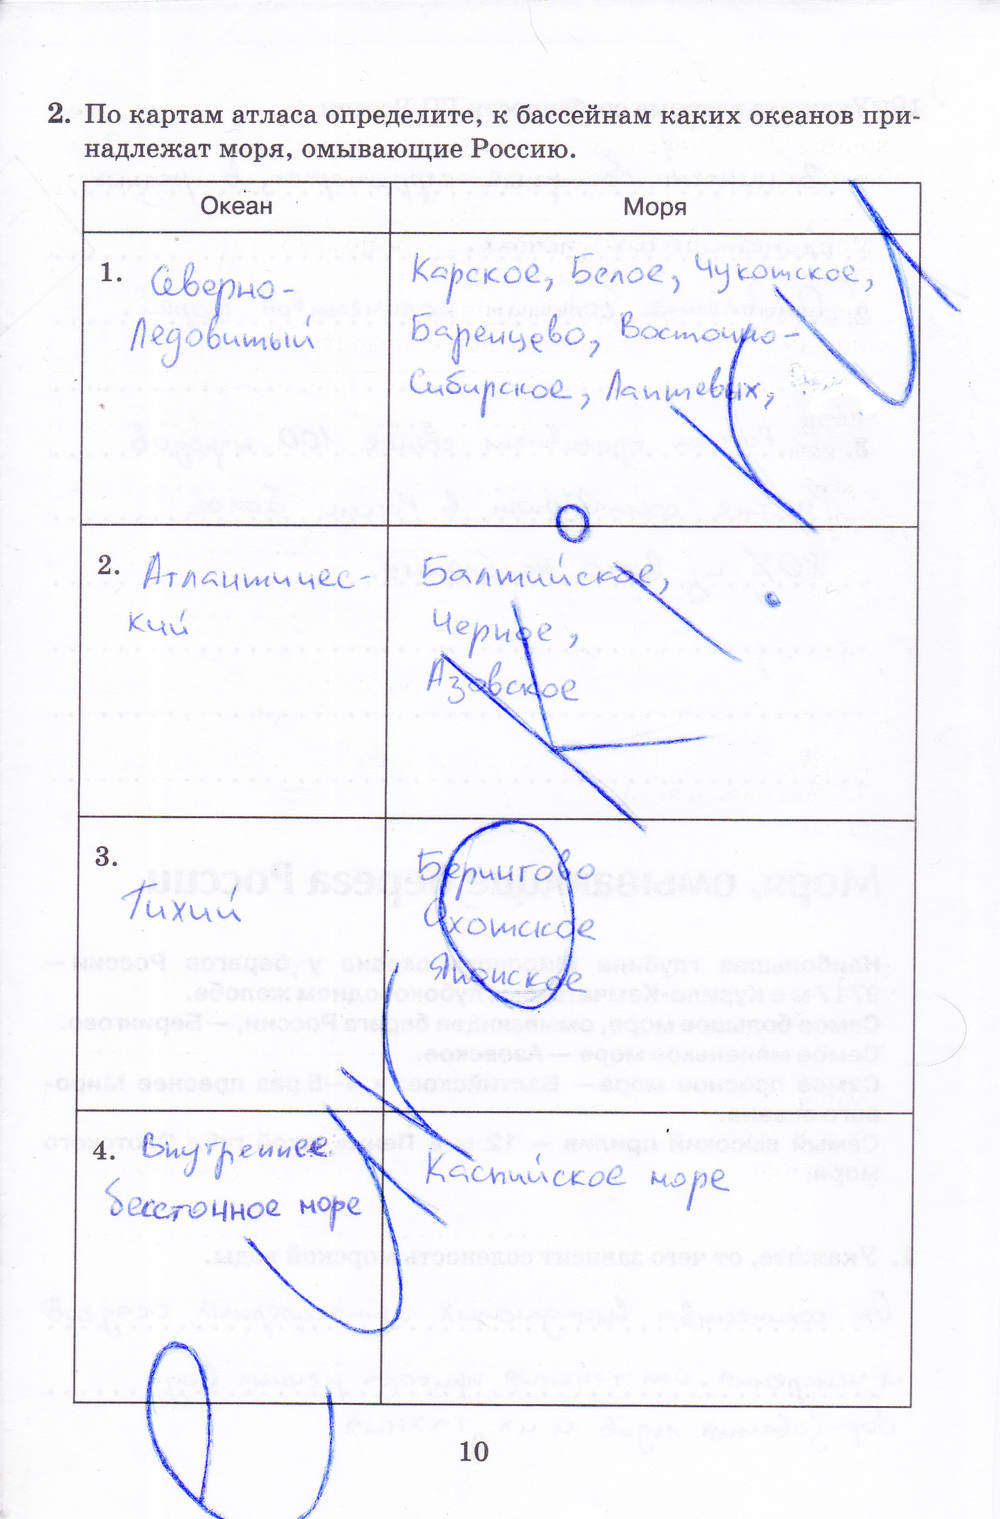 2. По картам атласа определите, к бассейнам каких океанов при-
надлежат моря, омывающие Россию.
Океан
Моря
1. Северно-
Ледовитый
Карское, Белое, Чукотское,
Баренцево, Восточно-
Сибирское, Лаптевых,
2. Атлантичес-
кий
Балтийское,
Черное,
Азовское
3.
Тихий
Берингово
Охотское
Японское
4. Внутреннее,
бессточное море
Каспийское море
10